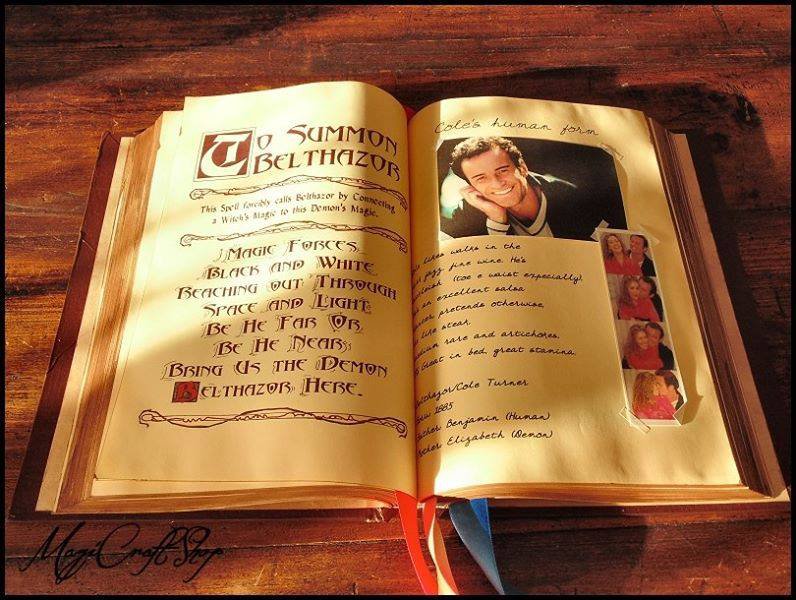 To Summon
Belthazor
This Spell forcibly calls Belthazor by Connecting
a Witch's Magic to this Demon's Magic.
Magic Forces
Black and White
Reaching out Through
Space and Light
Be He Far Or
Be He Near
Bring Us the Demon
Belthazor Here.
Cole's human form
likes walks in the
jazz fine wine. He's
(toe e waist especially)
an excellent salsa
pretends otherwise
like steak
rare and artichokes.
Great in bed great stamina.
Belthazor/Cole Turner
1885
Benjamin (Human)
Elizabeth (Demon)
MagiCraftShop